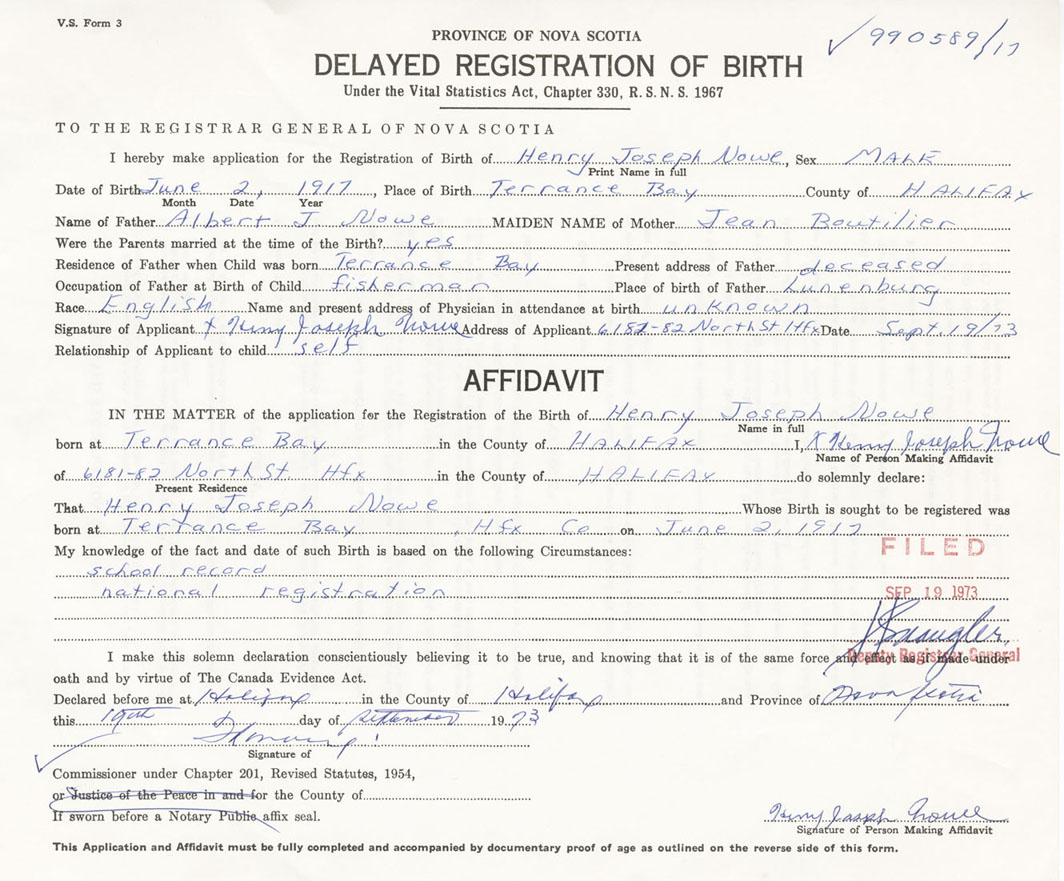 V.S. Form 3
✓990589/17
PROVINCE OF NOVA SCOTIA
DELAYED REGISTRATION OF BIRTH
Under the Vital Statistics Act, Chapter 330, R. S. N. S. 1967
TO THE REGISTRAR GENERAL OF NOVA SCOTIA
I hereby make application for the Registration of Birth of Henry Joseph Nowe, Sex MALE
Print Name in full
Date of Birth June 2, 1917, Place of Birth Terrance Bay County of HALIFAX
Month Date Year
Name of Father Albert J. Nowe MAIDEN NAME of Mother Jean Boutilier
Were the Parents married at the time of the Birth? yes
Residence of Father when Child was born Terrance Bay Present address of Father deceased
Occupation of Father at Birth of Child fisherman Place of birth of Father Lunenburg
Race English Name and present address of Physician in attendance at birth unknown
Signature of Applicant x Henry Joseph Nowe Address of Applicant 6181-82 North St Hfx Date Sept. 19/73
Relationship of Applicant to child self
AFFIDAVIT
IN THE MATTER of the application for the Registration of the Birth of Henry Joseph Nowe
Name in full
born at Terrance Bay in the County of HALIFAX I, X Henry Joseph Nowe
Name of Person Making Affidavit
of 6181-82 North St. Hfx in the County of HALIFAX do solemnly declare:
Present Residence
That Henry Joseph Nowe Whose Birth is sought to be registered was
born at Terrance Bay, Hfx Co on June 2, 1917
My knowledge of the fact and date of such Birth is based on the following Circumstances:
FILED
school record
national registration
SEP 19 1973
Deputy Registrar General
I make this solemn declaration conscientiously believing it to be true, and knowing that it is of the same force and effect as if made under
oath and by virtue of The Canada Evidence Act.
Declared before me at Halifax in the County of Halifax and Province of Nova Scotia
this 19th day of September 1973
Signature of
Commissioner under Chapter 201, Revised Statutes, 1954,
or Justice of the Peace in and for the County of
If sworn before a Notary Public affix seal.
Henry Joseph Nowe
Signature of Person Making Affidavit
This Application and Affidavit must be fully completed and accompanied by documentary proof of age as outlined on the reverse side of this form.